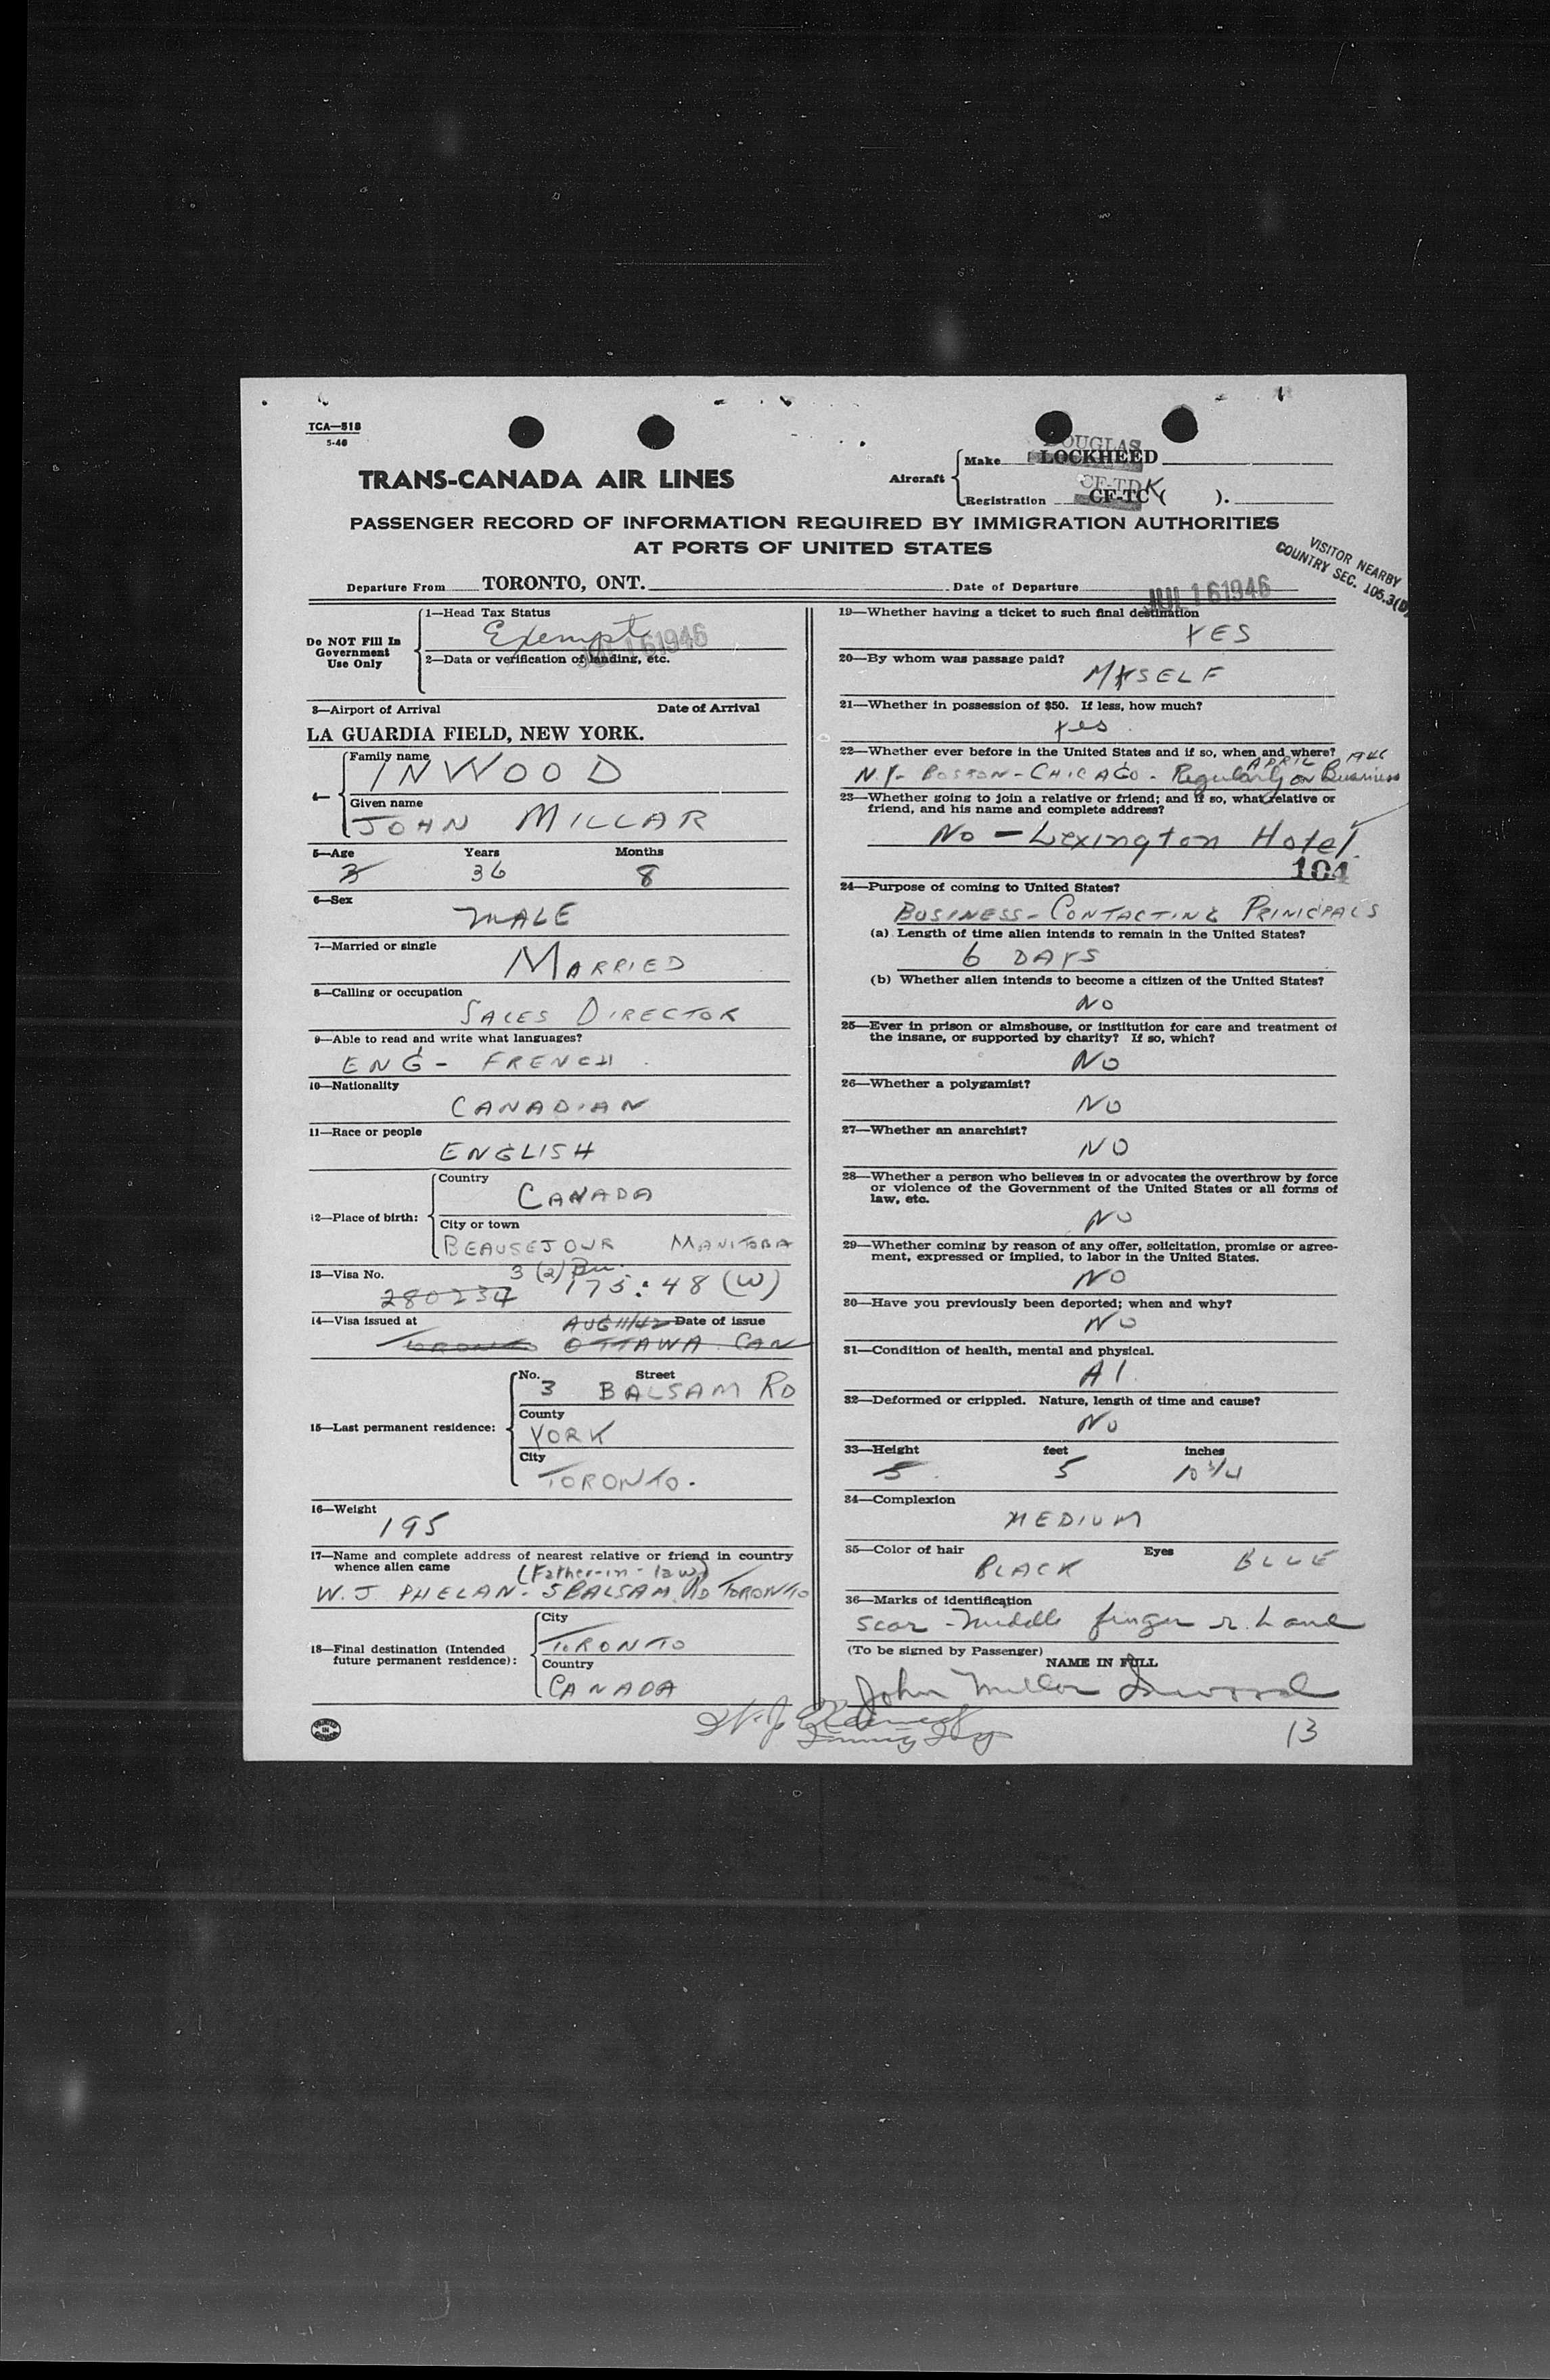 TCA—518
5-46
DOUGLAS
Make LOCKHEED
TRANS-CANADA AIR LINES
Aircraft
CF-TDK
Registration CF-TC ( ).
PASSENGER RECORD OF INFORMATION REQUIRED BY IMMIGRATION AUTHORITIES
AT PORTS OF UNITED STATES
VISITOR NEARBY
COUNTRY SEC. 105.3(
Departure From TORONTO, ONT. Date of Departure JUL 16 1946
Do NOT Fill In
Government
Use Only
1—Head Tax Status
Exempt
JUL 16 1946
2—Data or verification of landing, etc.
3—Airport of Arrival Date of Arrival
LA GUARDIA FIELD, NEW YORK.
4—
Family name
INWOOD
Given name
JOHN MILLAR
5—Age Years Months
3 36 8
6—Sex
MALE
7—Married or single
MARRIED
8—Calling or occupation
SALES DIRECTOR
9—Able to read and write what languages?
ENG - FRENCH
10—Nationality
CANADIAN
11—Race or people
ENGLISH
12—Place of birth:
Country
CANADA
City or town
BEAUSEJOUR MANITOBA
13—Visa No. 3 (2)
280234 175:48 (W)
14—Visa issued at AUG 11/42 Date of issue
TORONTO OTTAWA CAN
15—Last permanent residence:
No. Street
3 BALSAM RD
County
YORK
City
TORONTO.
16—Weight
195
17—Name and complete address of nearest relative or friend in country
whence alien came (Father-in-law)
W. J. PHELAN - 5 BALSAM RD TORONTO
18—Final destination (Intended
future permanent residence):
City
TORONTO
Country
CANADA
19—Whether having a ticket to such final destination
YES
20—By whom was passage paid?
MYSELF
21—Whether in possession of $50. If less, how much?
Yes
22—Whether ever before in the United States and if so, when and where?
APRIL 1946
N.Y- BOSTON - CHICAGO - Regularly on Business
23—Whether going to join a relative or friend; and if so, what relative or
friend, and his name and complete address?
No - Lexington Hotel
104
24—Purpose of coming to United States?
BUSINESS - CONTACTING PRINCIPALS
(a) Length of time alien intends to remain in the United States?
6 DAYS
(b) Whether alien intends to become a citizen of the United States?
NO
25—Ever in prison or almshouse, or institution for care and treatment of
the insane, or supported by charity? If so, which?
NO
26—Whether a polygamist?
NO
27—Whether an anarchist?
NO
28—Whether a person who believes in or advocates the overthrow by force
or violence of the Government of the United States or all forms of
law, etc.
NO
29—Whether coming by reason of any offer, solicitation, promise or agree-
ment, expressed or implied, to labor in the United States.
NO
30—Have you previously been deported; when and why?
NO
31—Condition of health, mental and physical.
A1.
32—Deformed or crippled. Nature, length of time and cause?
NO
33—Height feet inches
5 5 10 3/4
34—Complexion
MEDIUM
35—Color of hair Eyes
BLACK BLUE
36—Marks of identification
Scar - middle finger r. hand
(To be signed by Passenger)
NAME IN FULL
John Millar Inwood
13
PRINTED
IN
CANADA